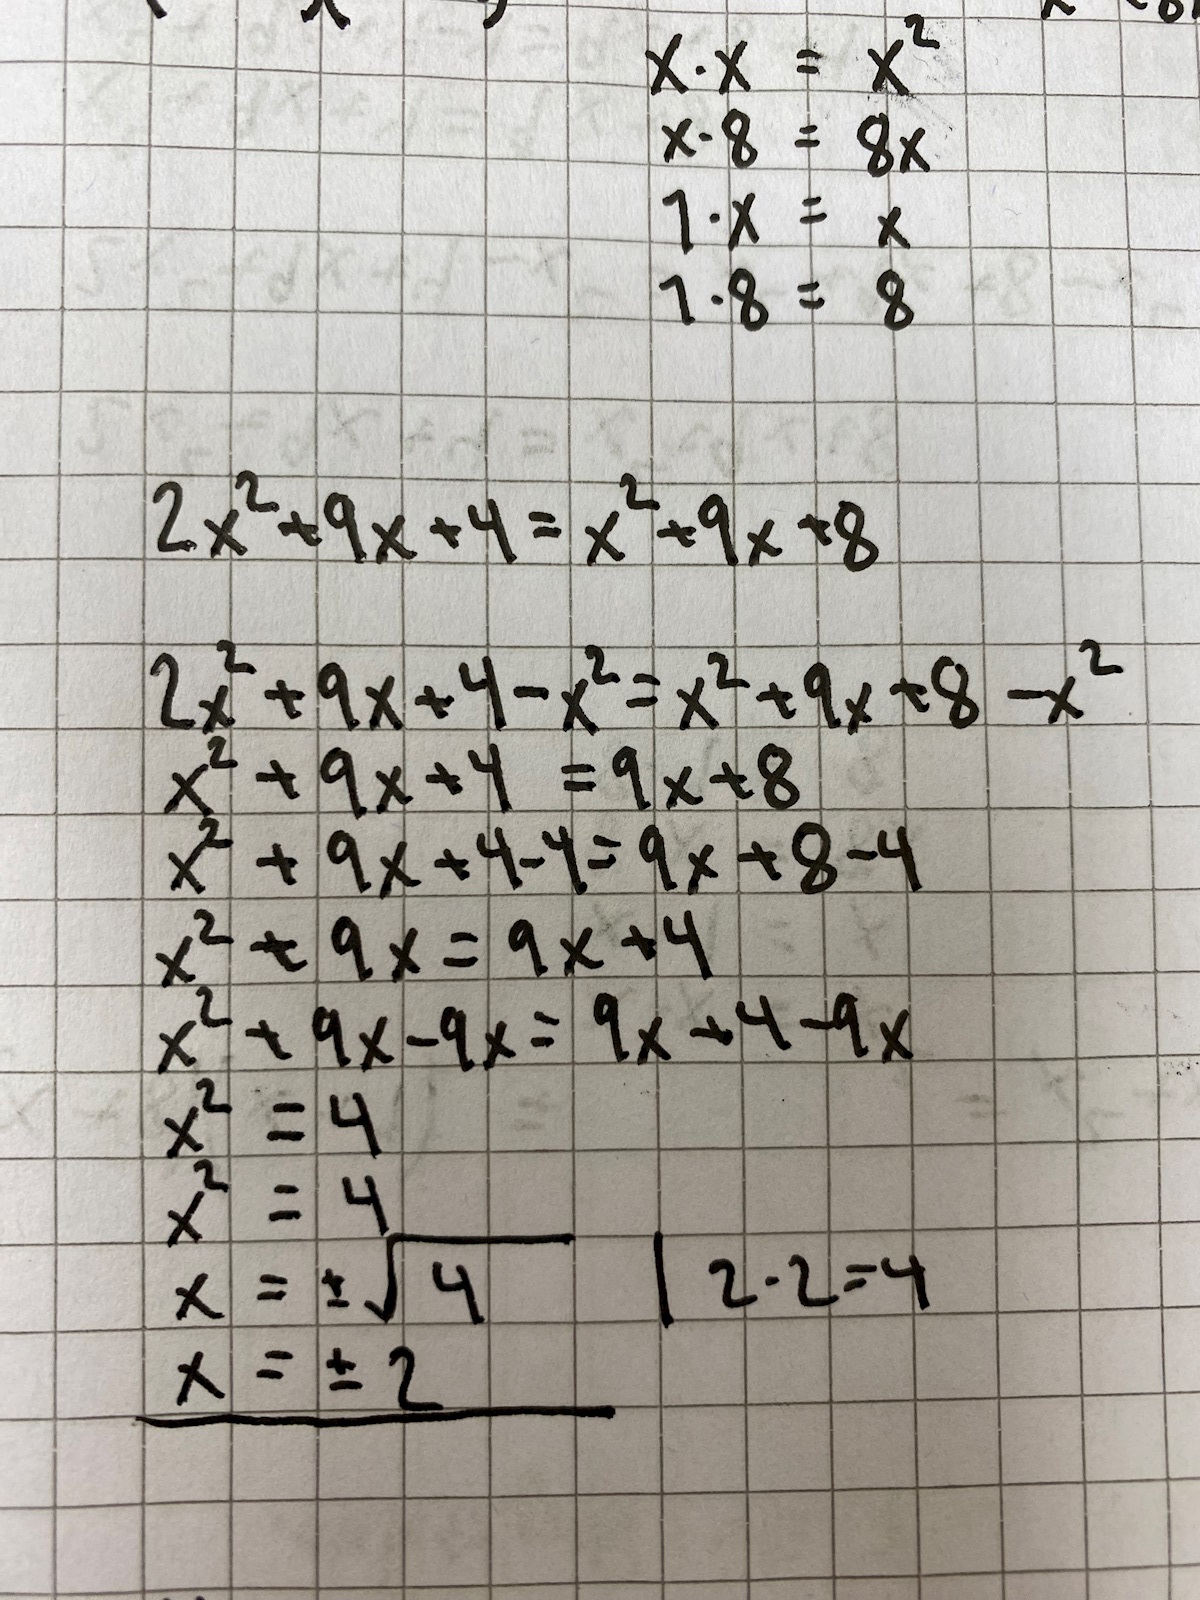 x·x = x²
x·8 = 8x
1·x = x
1·8 = 8
2x²+9x+4=x²+9x+8
2x²+9x+4-x²=x²+9x+8-x²
x²+9x+4 =9x+8
x²+9x+4-4=9x+8-4
x²+9x=9x+4
x²+9x-9x=9x+4-9x
x² = 4
x² = 4
x = ±√4 | 2·2=4
x = ±2